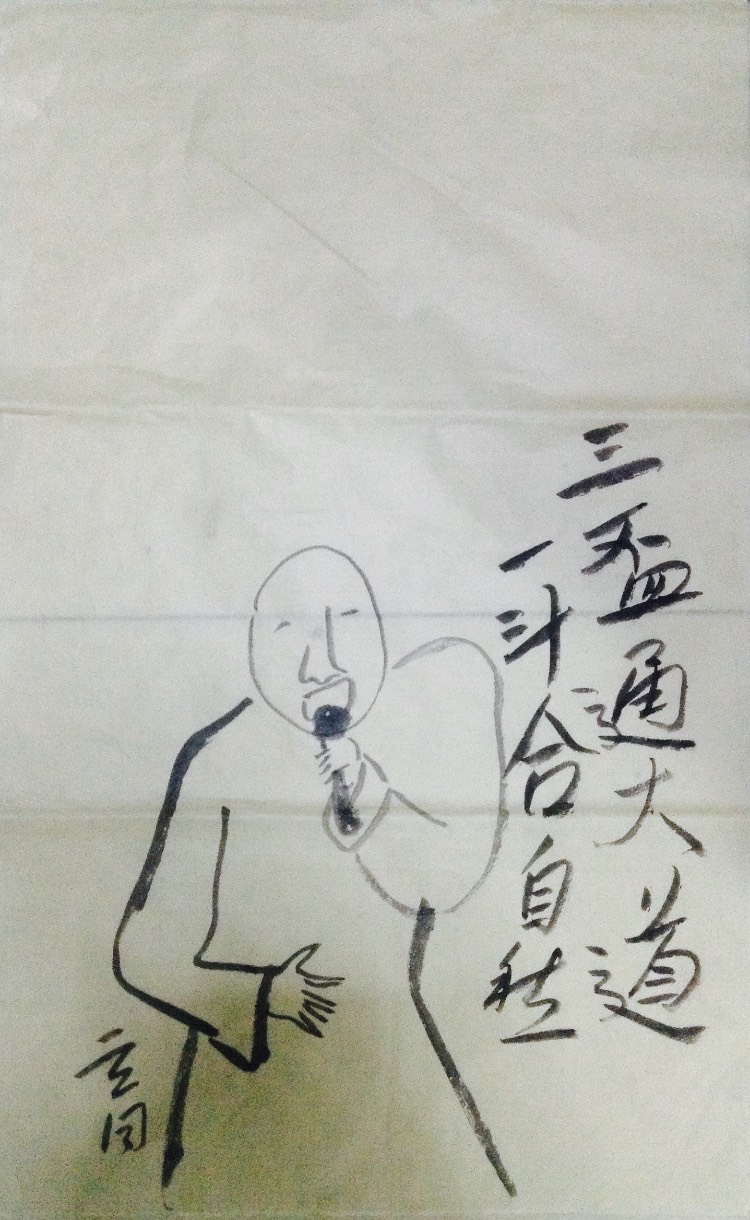 三盃通大道
一斗合自然
立同